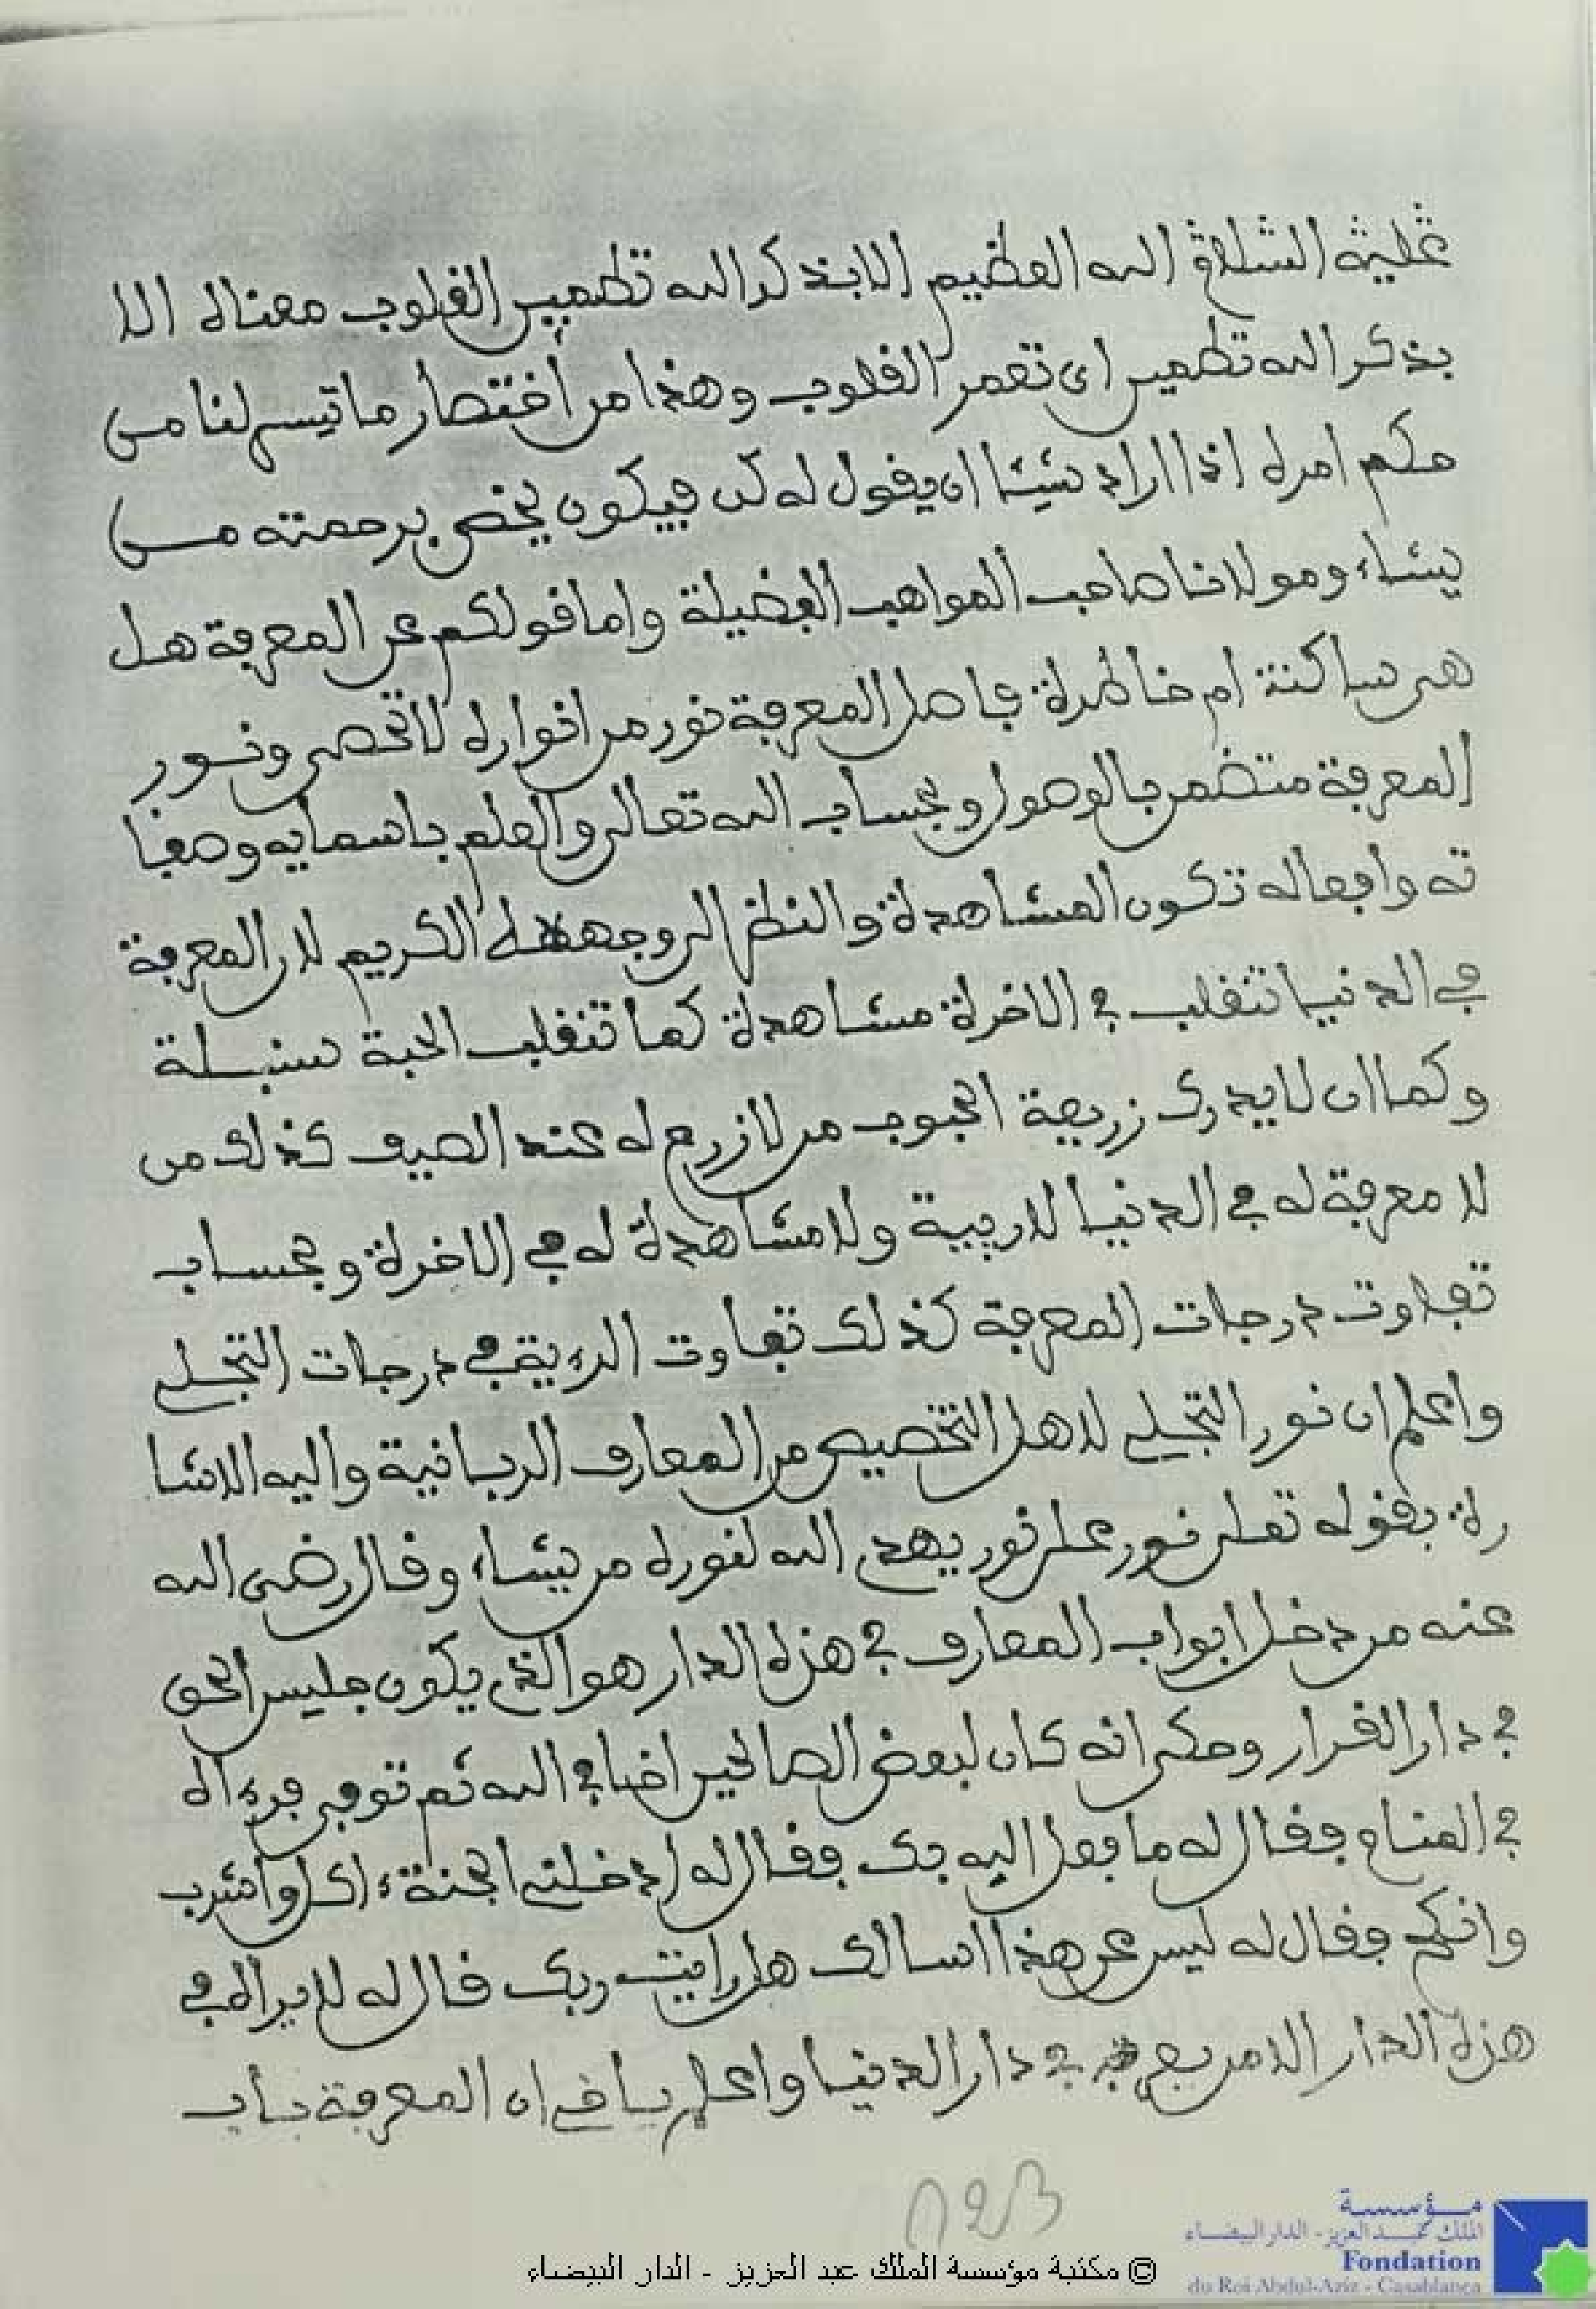 الله العظيم الا بذكر الله تطمين القلوب معناه الا
بذكر الله تطمين اى تعمر القلوب وهذا من أختصار ما تيسر لنا من
حكم امره اذا اراد شيئا ان يقول له كن فيكون يختص برحمته من
يشاء ومولانا صاحب المواهب الفضيلة واما قولكم عن المعرفة هل
هى ساكنة ام خاطرة فاصل المعرفة نور من انواره لا تحصى ونور
المعرفة متضمن بالوصول وبحساب الله تعالى والعلم باسمايه وصفا
ته وافعاله تكون المشاهدة والنظر الى وجهه الكريم لان المعرفة
في الدنيا تنقلب في الاخرة مشاهدة كما تنقلب الحبة سنبلة
وكما ان لا يدرى زريعة الحبوب من لا زرع له عند الصيف كذلك من
لا معرفة له في الدنيا لا ريية ولا مشاهدة له في الاخرة وبحساب
تفاوت درجات المعرفة كذلك تفاوت الرءية في درجات التجلي
واعلم ان نور التجلي لاهل التخصيص من المعارف الربانية واليه الاشا
رة بقوله تعلى نور على نور يهدى الله لنوره من يشاء وقال رضى الله
عنه من دخل ابواب المعارف في هذه الدار هو الذى يكون جليس الحق
في دار القرار وحكى انه كان لبعض الصالحين اخا في الله ثم توفى فرءاه
في المنام فقال له ما فعل اليه بك فقال له ادخلني الجنة ءاكل واشرب
وانكح فقال له ليس عن هذا اسالك هل رايت ربك قال له لا يراه في
هذه الدار الا من في دار الدنيا واعلم يا اخى ان المعرفة باب
مؤسسة
الملك عبد العزيز - الدار البيضاء
Fondation
du Roi Abdul-Aziz - Casablanca
© مكتبة مؤسسة الملك عبد العزيز - الدار البيضاء